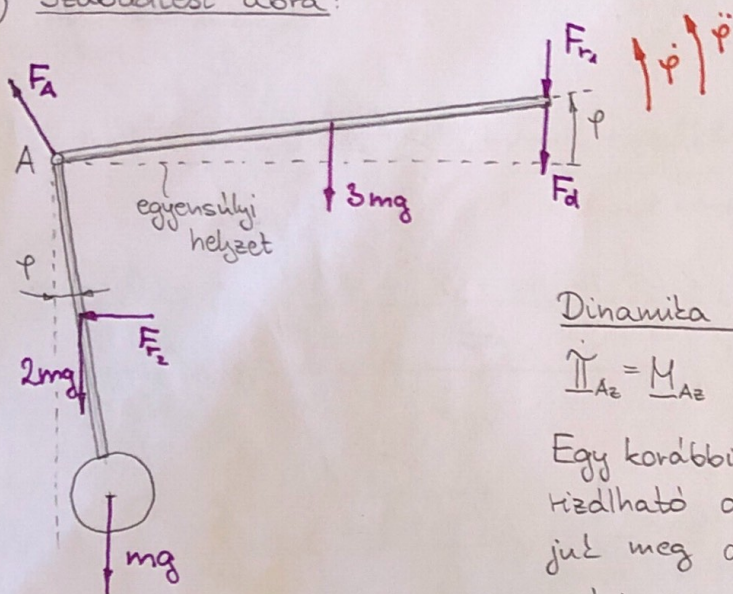 Szabadtest ábra:
F_r1
φ̇
φ̈
F_A
A
φ
F_d
3mg
egyensúlyi
helyzet
φ
F_r2
2mg
mg
Dinamika
Π̇_Az = M_Az
Egy korábbi
jut meg